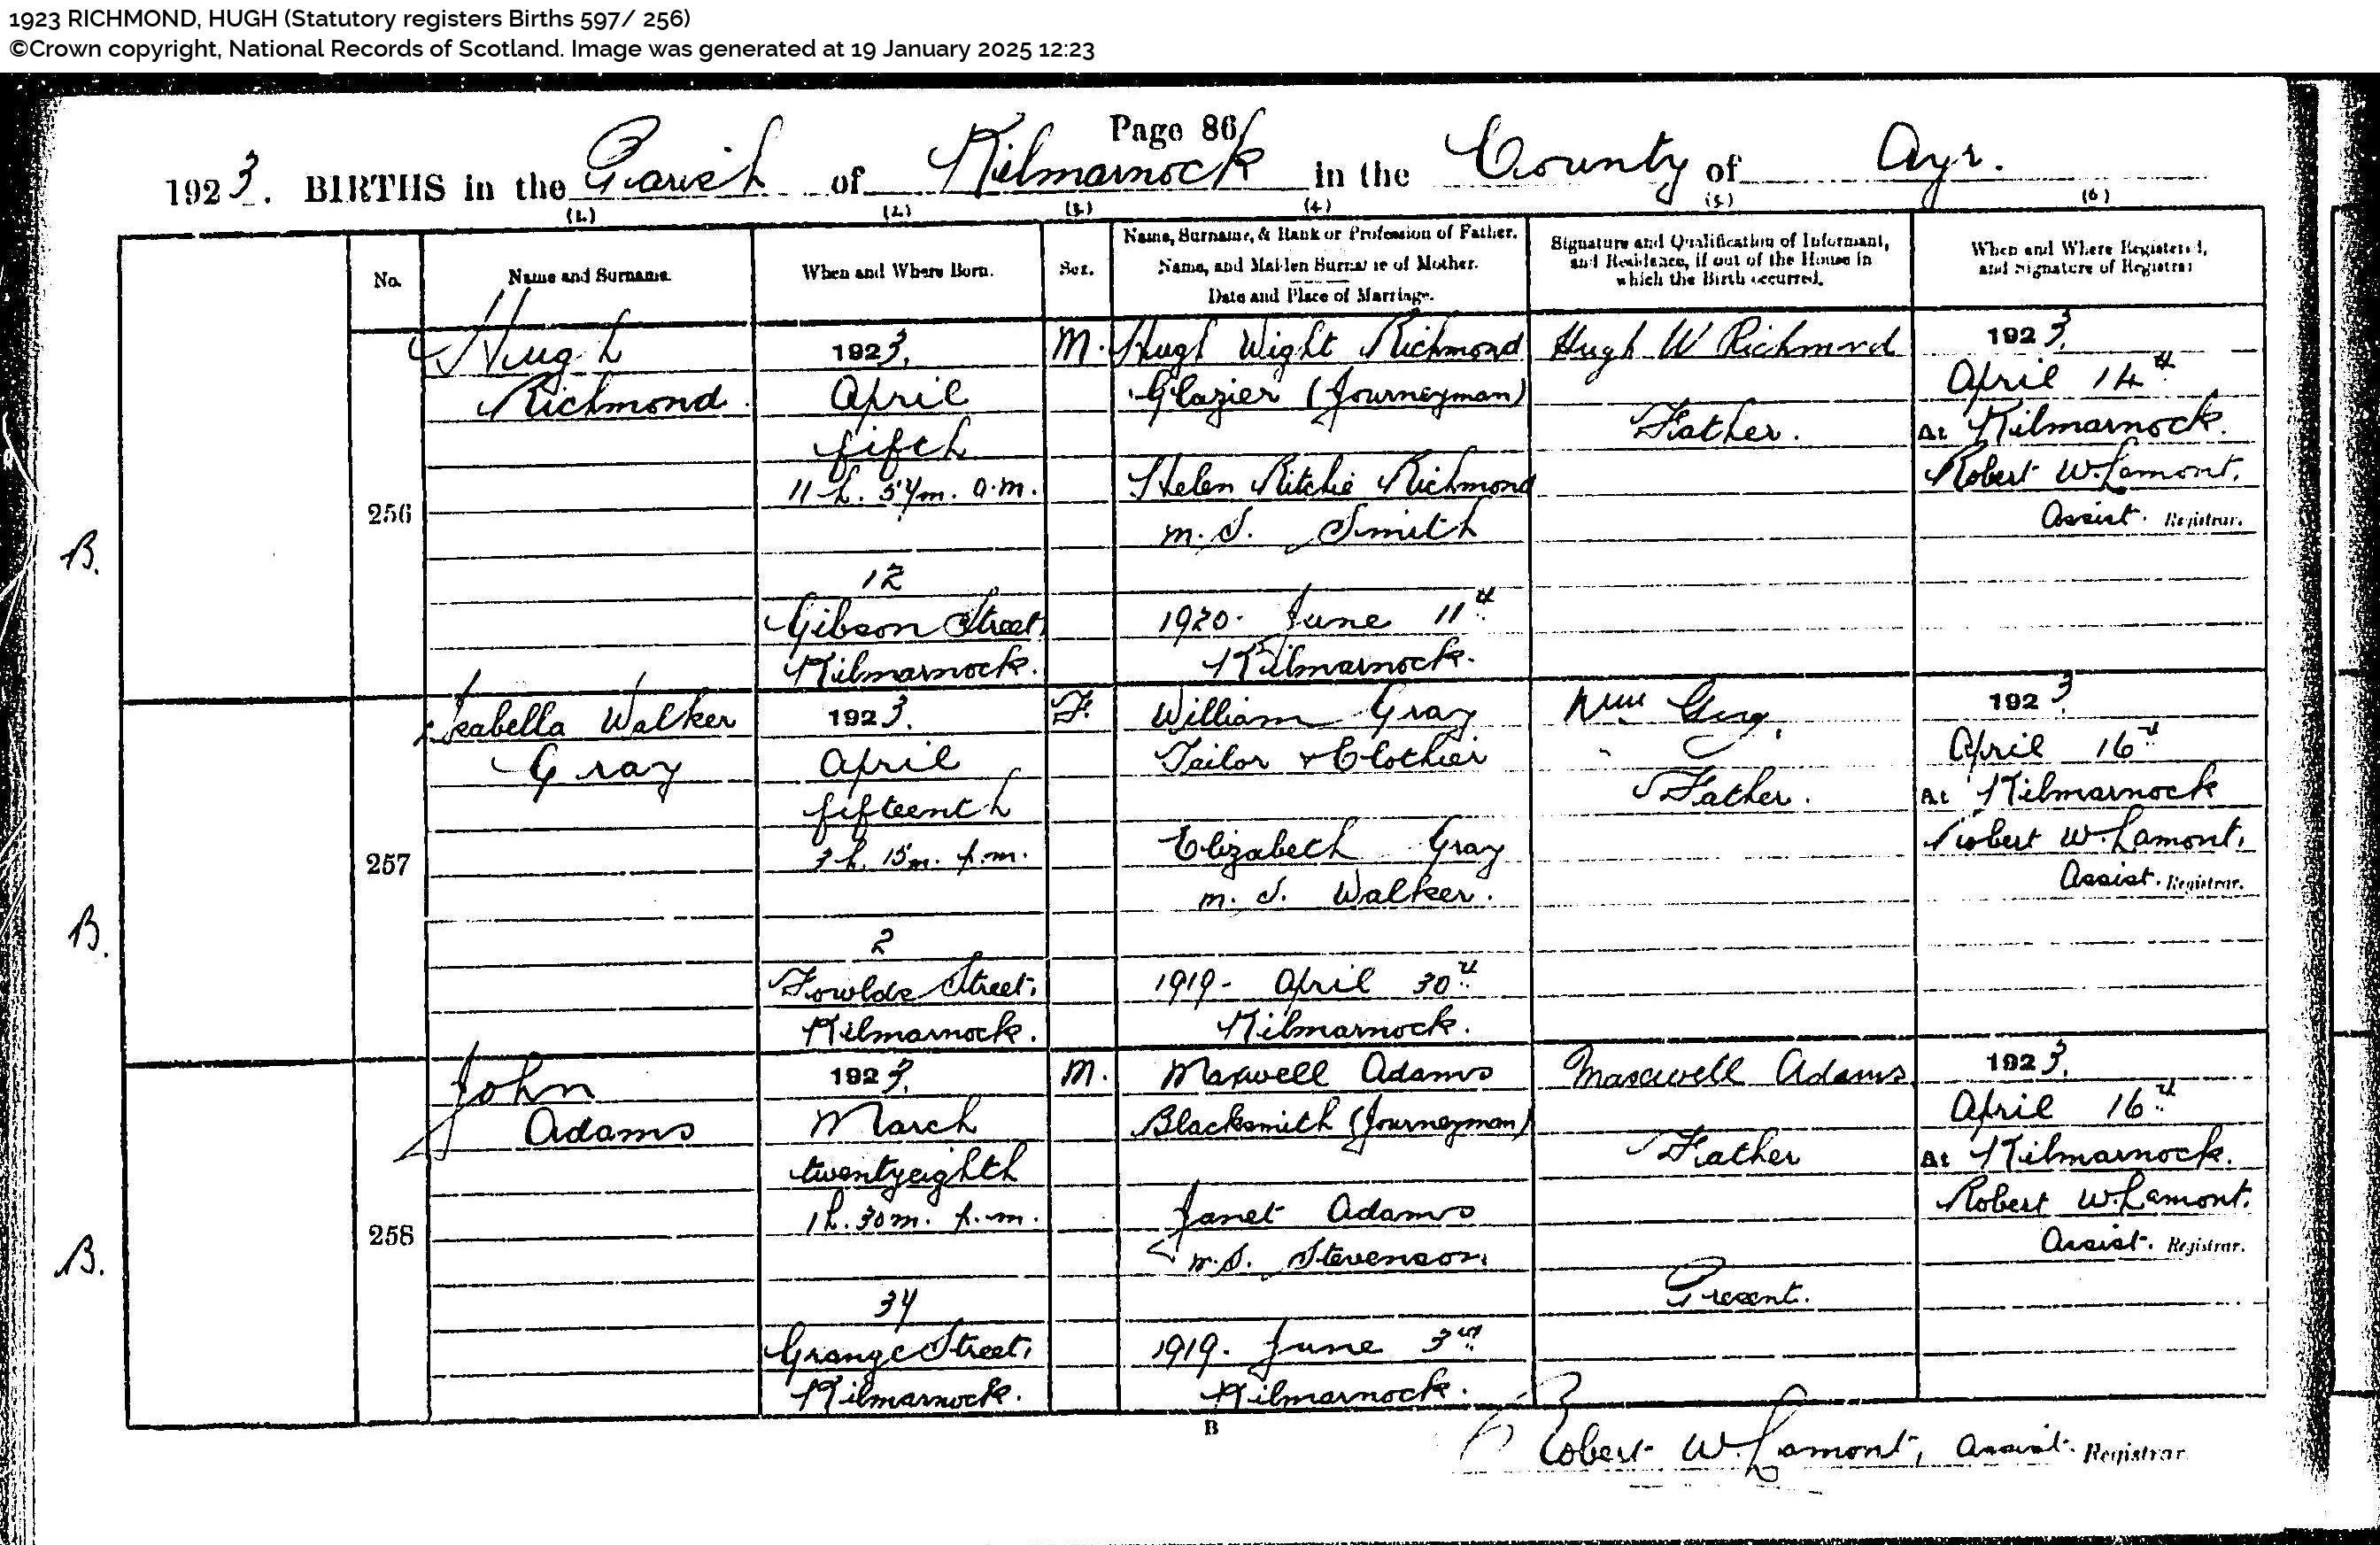 1923 RICHMOND, HUGH (Statutory registers Births 597/ 256)
©Crown copyright, National Records of Scotland. Image was generated at 19 January 2025 12:23
Page 86
1923. BIRTHS in the Parish of Kilmarnock in the County of Ayr.
(1.) (2.) (3.) (4.) (5.) (6)
No.
Name and Surname.
When and Where Born.
Sex.
Name, Surname, & Rank or Profession of Father.
Name, and Maiden Surname of Mother.
Date and Place of Marriage.
Signature and Qualification of Informant,
and Residence, if out of the House in
which the Birth occurred.
When and Where Registered,
and Signature of Registrar
B.
256
Hugh
Richmond
1923.
April
fifth
11 h. 57m. a.m.
12
Gibson Street,
Kilmarnock.
M.
Hugh Wight Richmond
Glazier (Journeyman)
Helen Ritchie Richmond
m.S. Smith
1920. June 11th
Kilmarnock.
Hugh W Richmond
Father.
1923.
April 14th
At Kilmarnock.
Robert W. Lamont.
Assist. Registrar.
B.
257
Isabella Walker
Gray
1923.
April
fifteenth
3 h. 15m. p.m.
2
Fowlds Street,
Kilmarnock.
F.
William Gray
Tailor & Clothier
Elizabeth Gray
m.S. Walker.
1919. April 30th
Kilmarnock.
Wm Gray,
Father.
1923
April 16th
At Kilmarnock
Robert W. Lamont,
Assist. Registrar.
B.
258
John
Adams
1923.
March
twentyeighth
1 h. 30m. p.m.
34
Grange Street,
Kilmarnock.
M.
Maxwell Adams
Blacksmith (Journeyman)
Janet Adams
m.S. Stevenson.
1919. June 3rd
Kilmarnock.
Maxwell Adams
Father
Present.
1923.
April 16th
At Kilmarnock.
Robert W. Lamont.
Assist. Registrar.
B
Robert W. Lamont, Assist. Registrar